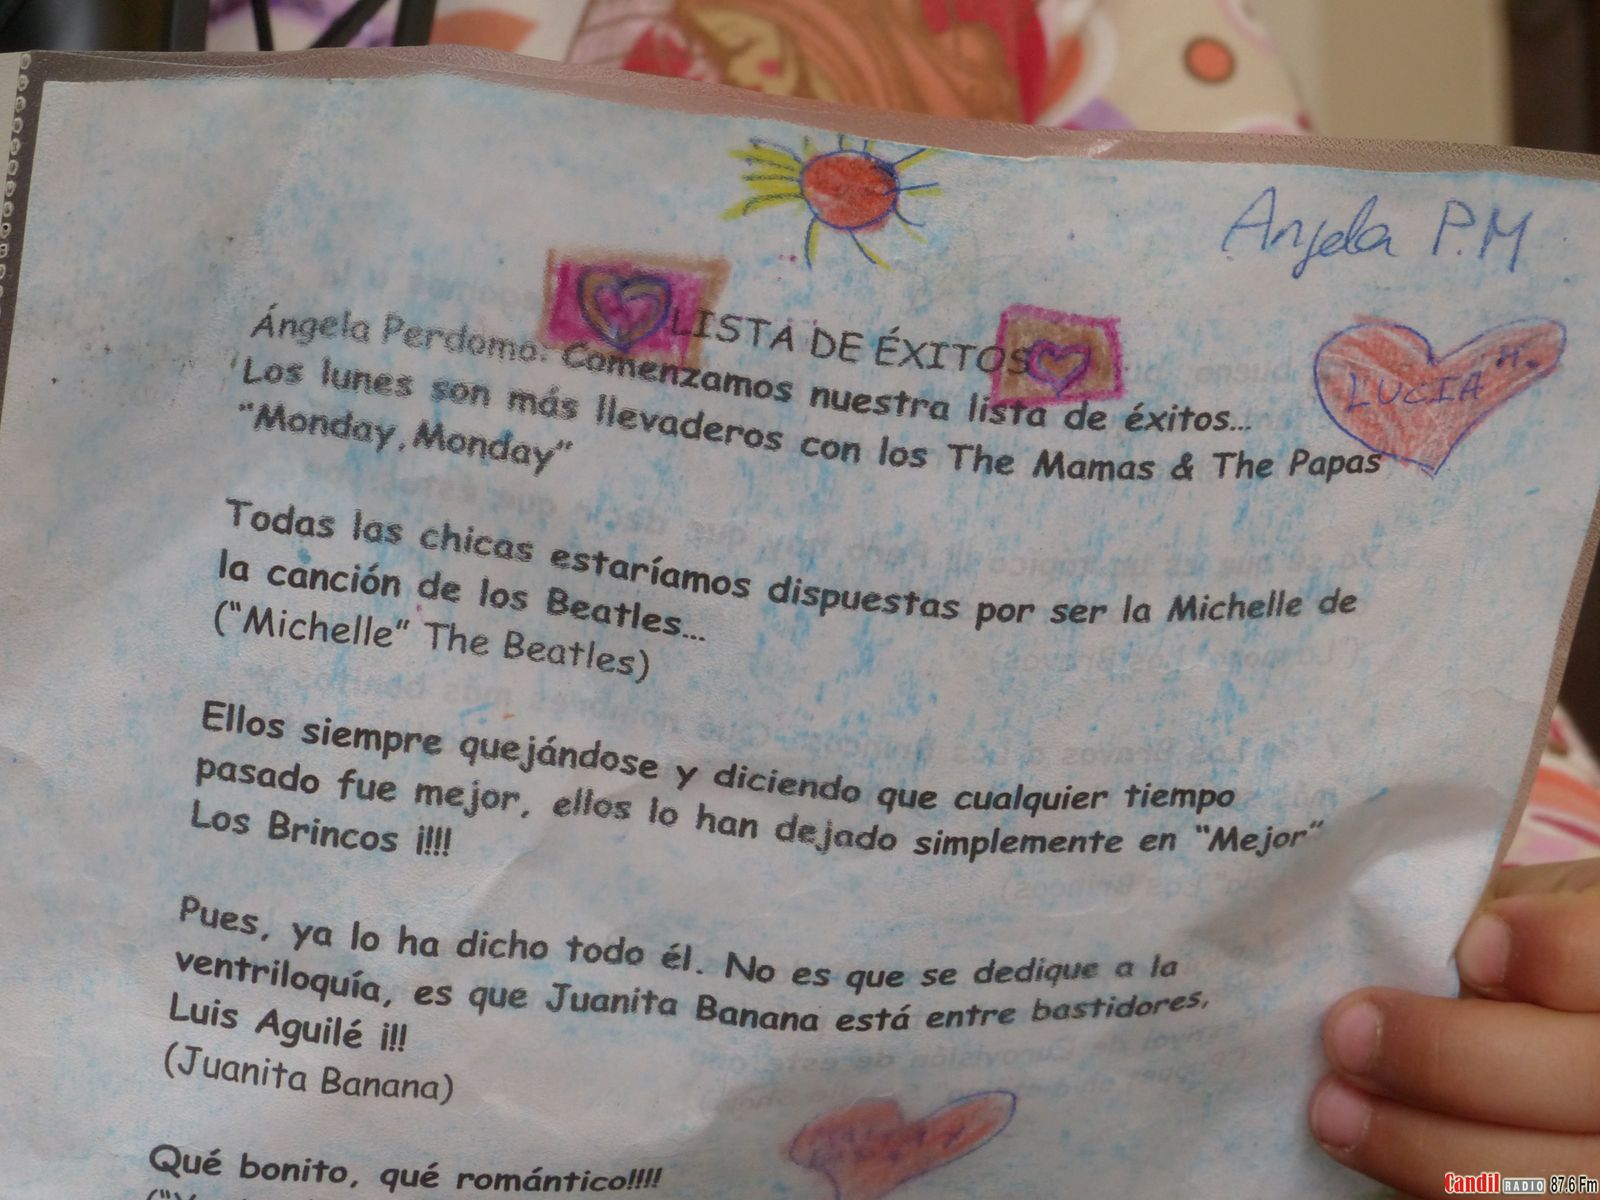 Angela P.M
LISTA DE ÉXITOS
Ángela Perdomo. Comenzamos nuestra lista de éxitos...
Los lunes son más llevaderos con los The Mamas & The Papas
"Monday, Monday"
LUCIA M.
Todas las chicas estaríamos dispuestas por ser la Michelle de
la canción de los Beatles...
("Michelle" The Beatles)
Ellos siempre quejándose y diciendo que cualquier tiempo
pasado fue mejor, ellos lo han dejado simplemente en "Mejor"
Los Brincos ¡!!!
Pues, ya lo ha dicho todo él. No es que se dedique a la
ventriloquía, es que Juanita Banana está entre bastidores,
Luis Aguilé ¡!!
(Juanita Banana)
Qué bonito, qué romántico!!!!
Candil RADIO 87.6 Fm